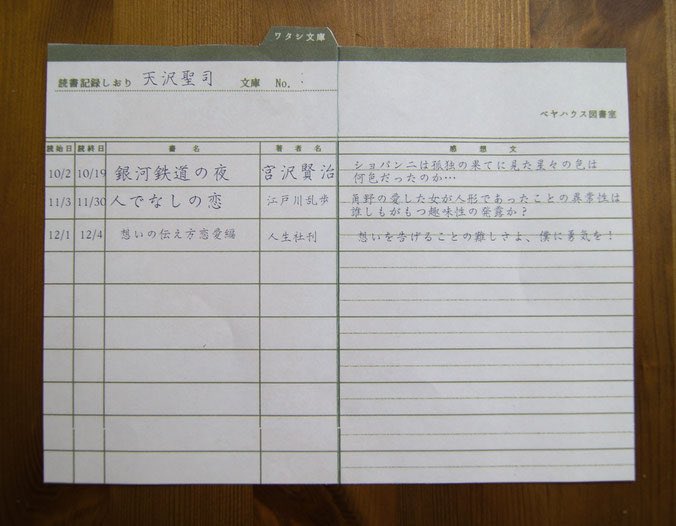 ワタシ文庫
読書記録しおり 天沢聖司 文庫 No.
ベヤハウス図書室
読始日 読終日 書名 著者名 感想文
10/2 10/19 銀河鉄道の夜 宮沢賢治 ショバンニは孤独の果てに見た星々の色は
何色だったのか…
11/3 11/30 人でなしの恋 江戸川乱歩 角野の愛した女が人形であったことの異常性は
誰しもがもつ趣味性の発露か?
12/1 12/4 想いの伝え方恋愛編 人生社刊 想いを告げることの難しさよ、僕に勇気を!